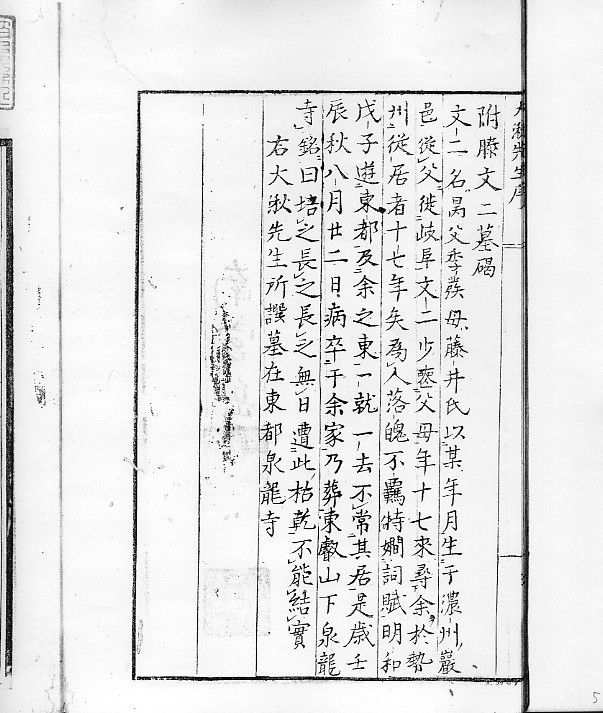 大湫先生序
附滕文二墓碣
文二名暠父季蕤母藤井氏以某年月生于濃州巖
邑從父徙岐阜文二少喪父母年十七來尋余於勢
州從居者十七年矣為人落魄不羈特嫺詞賦明和
戊子遊東都及余之東一就一去不常其居是歲壬
辰秋八月廿二日病卒于余家乃葬東叡山下泉龍
寺銘曰培之長之長之無日遭此枯乾不能結實
右大湫先生所譔墓在東都泉龍寺
5